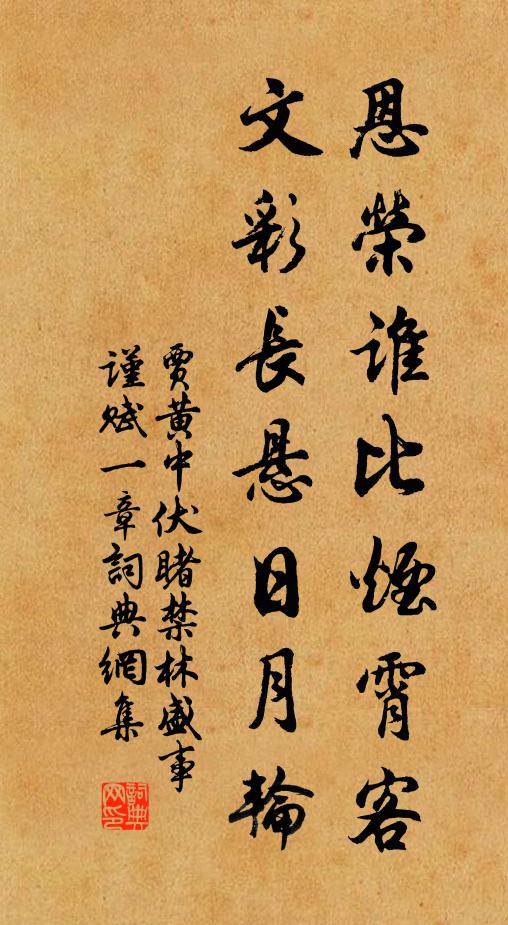 恩榮誰比煙霄客
文彩長懸日月輪
賈黃中伏睹禁林盛事
謹賦一章詞典網集
詞典网印